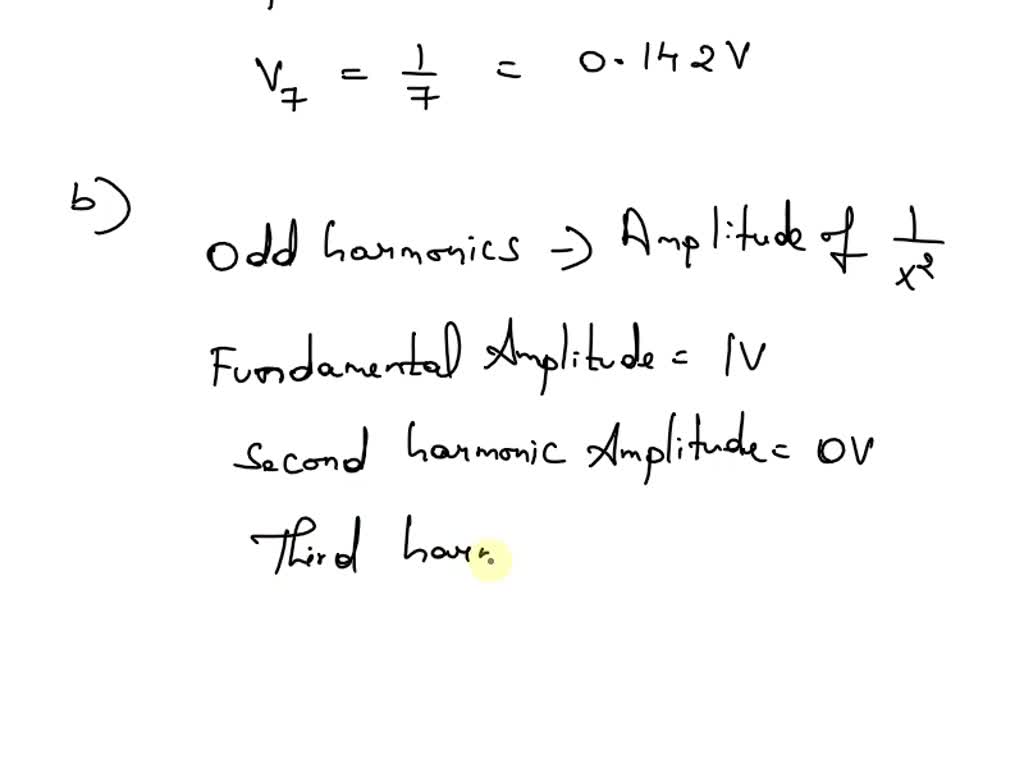 V7 = 1/7 = 0.142V
b)
Odd harmonics → Amplitude of 1/x²
Fundamental Amplitude = 1V
Second harmonic Amplitude = 0V
Third har